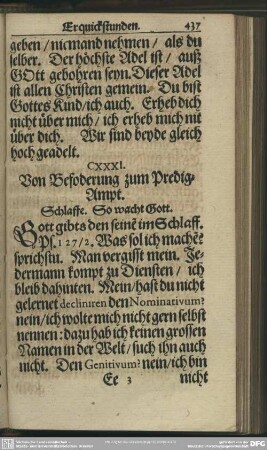 Erquickstunden. 437
geben / niemand nehmen / als du
selber. Der höchste Adel ist / auß
GOtt gebohren seyn. Dieser Adel
ist allen Christen gemein. Du bist
Gottes Kind / ich auch. Erheb dich
nicht über mich / ich erheb mich nit
über dich. Wir sind beyde gleich
hoch geadelt.
CXXXI.
Von Befoderung zum Predig-
Ampt.
Schlaffe. So wacht Gott.
Gott gibts den seinē im Schlaff.
Ps. 127/2. Was sol ich machē?
sprichstu. Man vergißt mein. Je-
dermann kompt zu Diensten / ich
bleib dahinten. Mein / hast du nicht
gelernet decliniren den Nominativum?
nein / ich wolte mich nicht gern selbst
nennen: dazu hab ich keinen grossen
Namen in der Welt / such ihn auch
nicht. Den Genitivum? nein / ich bin
Ee 3 nicht